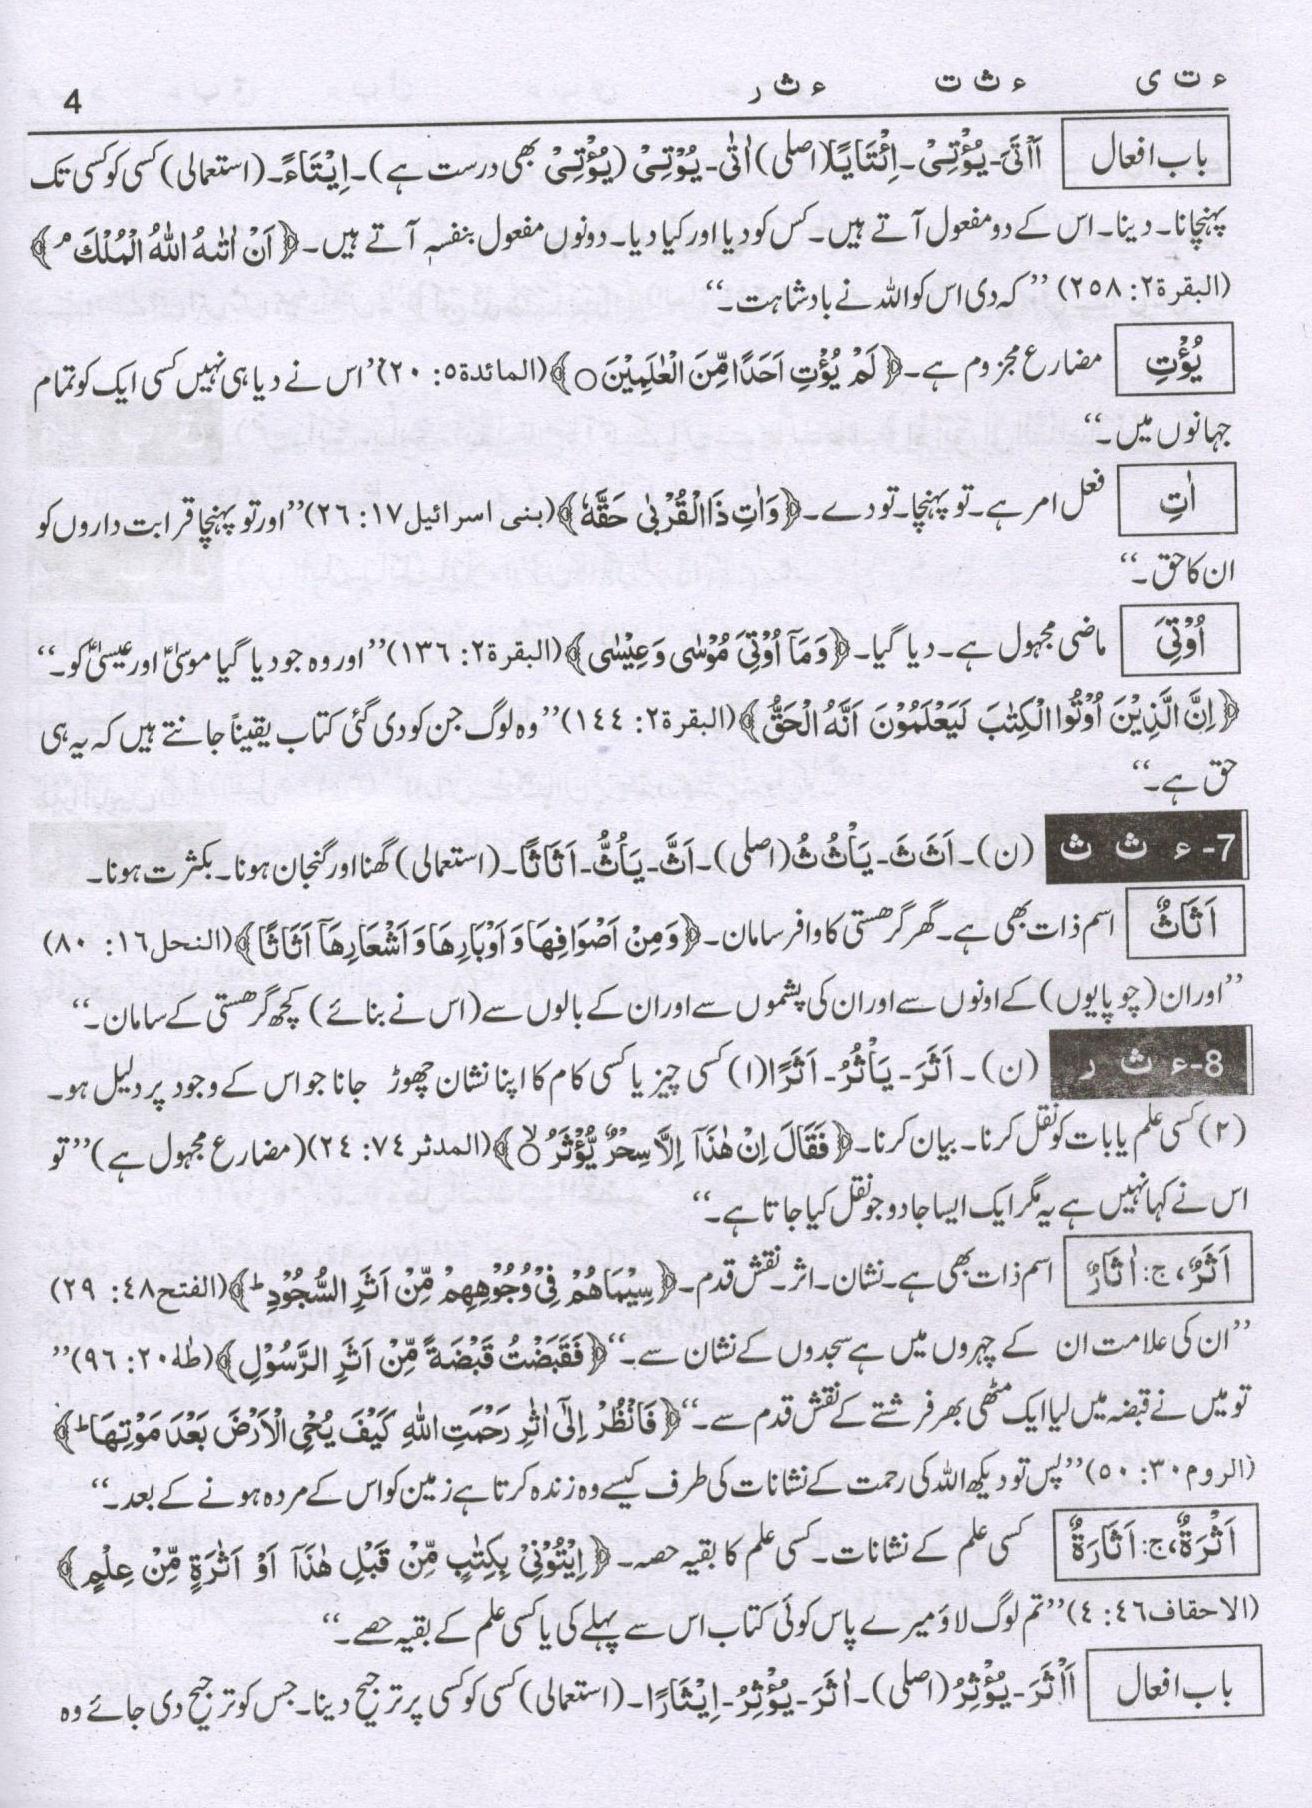 ء ت ی ء ث ت ء ث ر 4
باب افعال أَأْتَىَ۔ يُؤْتِىْ۔ اِئْتَايًا(اصلی) اٰتٰى۔ يُوْتِىْ (يُؤْتِىْ بھی درست ہے)۔ اِيْتَاءً۔ (استعمالی) کسی کو کسی تک
پہنچانا۔ دینا۔ اس کے دو مفعول آتے ہیں۔ کس کو دیا اور کیا دیا۔ دونوں مفعول بنفسہٖ آتے ہیں۔ ﴿اَنْ اٰتٰىهُ اللّٰهُ الْمُلْكَ ۘ﴾
(البقرة٢: ٢٥٨) ’’کہ دی اس کو اللہ نے بادشاہت۔‘‘
يُؤْتِ مضارع مجزوم ہے۔ ﴿لَمْ يُؤْتِ اَحَدًا مِّنَ الْعٰلَمِيْنَ ○﴾ (المائدة٥: ٢٠)’’اس نے دیا ہی نہیں کسی ایک کو تمام
جہانوں میں۔‘‘
اٰتِ فعل امر ہے۔ تو پہنچا۔ تو دے۔ ﴿وَاٰتِ ذَا الْقُرْبٰى حَقَّهٗ﴾ (بنى اسرائيل١٧: ٢٦)’’اور تو پہنچا قرابت داروں کو
ان کا حق۔‘‘
اُوْتِىَ ماضی مجہول ہے۔ دیا گیا۔ ﴿وَمَآ اُوْتِىَ مُوْسٰى وَعِيْسٰى﴾ (البقرة٢: ١٣٦)’’اور وہ جو دیا گیا موسیٰؑ اور عیسیٰؑ کو۔‘‘
﴿اِنَّ الَّذِيْنَ اُوْتُوا الْكِتٰبَ لَيَعْلَمُوْنَ اَنَّهُ الْحَقُّ﴾ (البقرة٢: ١٤٤)’’وہ لوگ جن کو دی گئی کتاب یقیناً جانتے ہیں کہ یہ ہی
حق ہے۔‘‘
7- ء ث ث (ن)۔ اَثَثَ۔ يَأْثُثُ (اصلی)۔ اَثَّ۔ يَأُثُّ۔ اَثَاثًا۔ (استعمالی) گھنا اور گنجان ہونا۔ بکثرت ہونا۔
اَثَاثٌ اسم ذات بھی ہے۔ گھر گرھستی کا وافر سامان۔ ﴿وَمِنْ اَصْوَافِهَا وَاَوْبَارِهَا وَاَشْعَارِهَآ اَثَاثًا﴾ (النحل١٦: ٨٠)
’’اور ان (چوپایوں) کے اونوں سے اور ان کی پشموں سے اور ان کے بالوں سے (اس نے بنائے) کچھ گرھستی کے سامان۔‘‘
8- ء ث ر (ن)۔ اَثَرَ۔ يَأْثُرُ۔ اَثَرًا (۱) کسی چیز یا کسی کام کا اپنا نشان چھوڑ جانا جو اس کے وجود پر دلیل ہو۔
(۲) کسی علم یا بات کو نقل کرنا۔ بیان کرنا۔ ﴿فَقَالَ اِنْ هٰذَآ اِلَّا سِحْرٌ يُّؤْثَرُ ۙ○﴾ (المدثر ٧٤: ٢٤)(مضارع مجہول ہے)’’تو
اس نے کہا نہیں ہے یہ مگر ایک ایسا جادو جو نقل کیا جاتا ہے۔‘‘
اَثَرٌ، ج: اٰثَارٌ اسم ذات بھی ہے۔ نشان۔ اثر۔ نقش قدم۔ ﴿سِيْمَاهُمْ فِىْ وُجُوْهِهِمْ مِّنْ اَثَرِ السُّجُوْدِ ؕ﴾ (الفتح٤٨: ٢٩)
’’ان کی علامت ان کے چہروں میں ہے سجدوں کے نشان سے۔‘‘ ﴿فَقَبَضْتُ قَبْضَةً مِّنْ اَثَرِ الرَّسُوْلِ﴾ (طٰهٰ٢٠: ٩٦)’’
تو میں نے قبضہ میں لیا ایک مٹھی بھر فرشتے کے نقش قدم سے۔‘‘ ﴿فَانْظُرْ اِلٰٓى اٰثٰرِ رَحْمَتِ اللّٰهِ كَيْفَ يُحْىِ الْاَرْضَ بَعْدَ مَوْتِهَا ؕ﴾
(الروم٣٠: ٥٠)’’پس تو دیکھ اللہ کی رحمت کے نشانات کی طرف کیسے وہ زندہ کرتا ہے زمین کو اس کے مردہ ہونے کے بعد۔‘‘
اَثْرَةٌ، ج: اَثَارَةٌ کسی علم کے نشانات۔ کسی علم کا بقیہ حصہ۔ ﴿اِيْتُوْنِىْ بِكِتٰبٍ مِّنْ قَبْلِ هٰذَآ اَوْ اَثٰرَةٍ مِّنْ عِلْمٍ﴾
(الاحقاف٤٦: ٤)’’تم لوگ لاؤ میرے پاس کوئی کتاب اس سے پہلے کی یا کسی علم کے بقیہ حصے۔‘‘
باب افعال أَأْثَرَ۔ يُؤْثِرُ (اصلی)۔ اٰثَرَ۔ يُؤْثِرُ۔ اِيْثَارًا۔ (استعمالی) کسی کو کسی پر ترجیح دینا۔ جس کو ترجیح دی جائے وہ